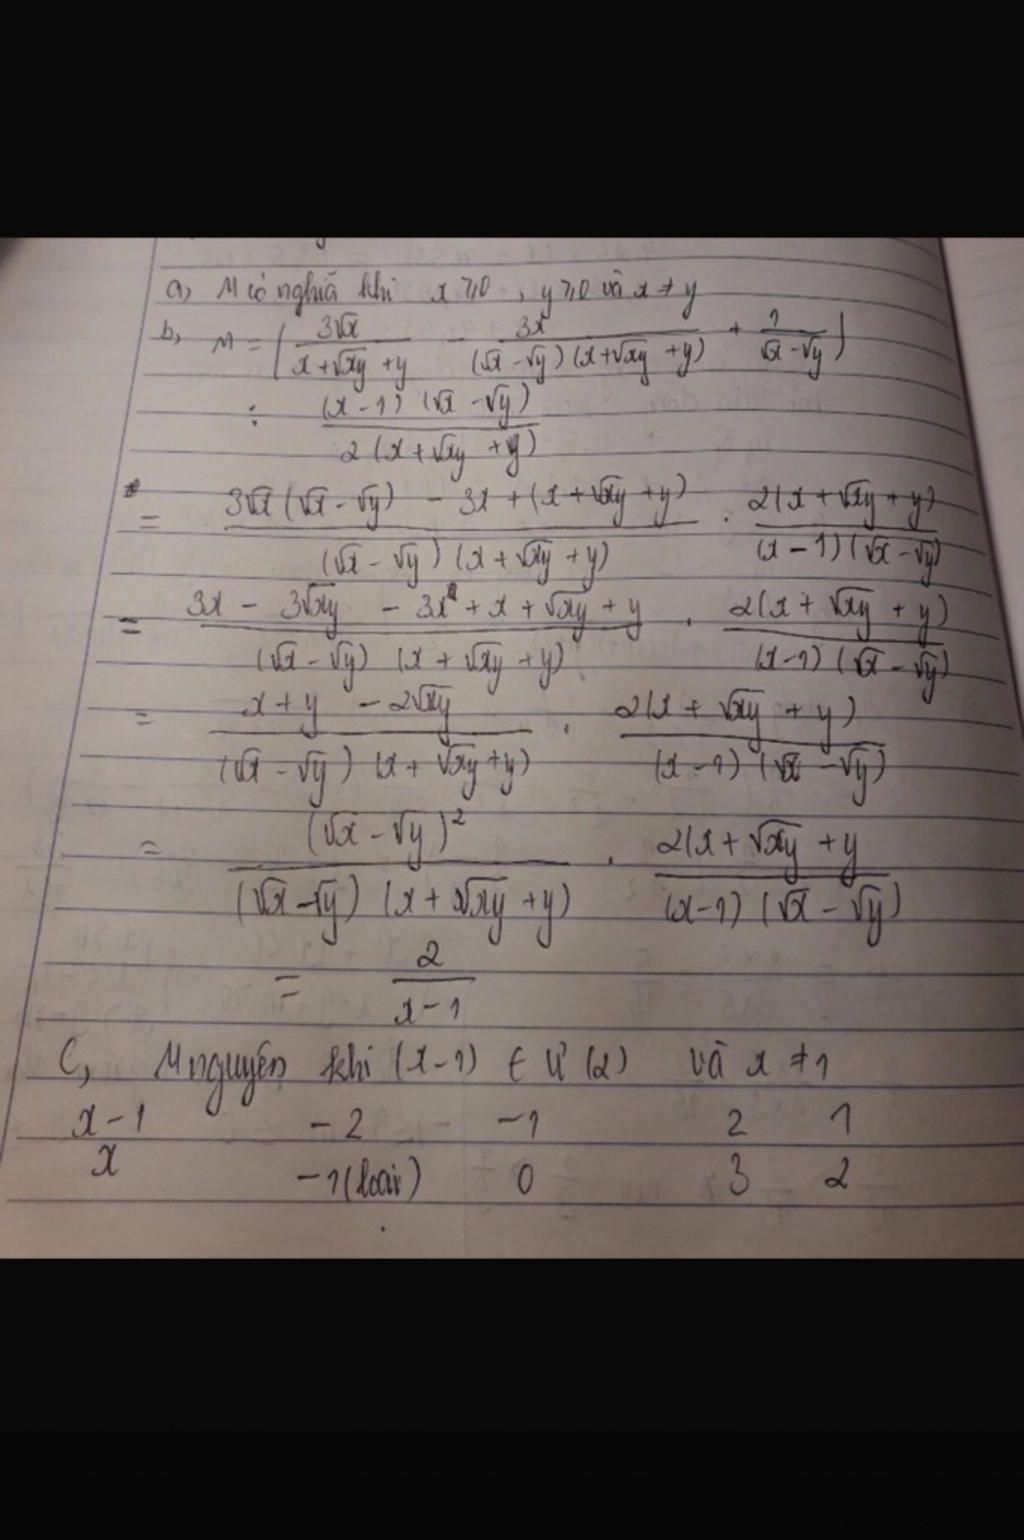 a, M có nghĩa khi x ⩾ 0 , y ⩾ 0 và x ≠ y
b, M = ( 3√x / (x + √xy + y) - 3x / ((√x - √y) (x + √xy + y)) + 1 / (√x - √y) )
: (x - 1) (√x - √y) / 2 (x + √xy + y)
= (3√x (√x - √y) - 3x + (x + √xy + y)) / ((√x - √y) (x + √xy + y)) . 2(x + √xy + y) / ((x - 1) (√x - √y))
= (3x - 3√xy - 3x + x + √xy + y) / ((√x - √y) (x + √xy + y)) . 2(x + √xy + y) / ((x - 1) (√x - √y))
= (x + y - 2√xy) / ((√x - √y) (x + √xy + y)) . 2(x + √xy + y) / ((x - 1) (√x - √y))
= (√x - √y)² / ((√x - √y) (x + √xy + y)) . 2(x + √xy + y / ((x - 1) (√x - √y))
= 2 / (x - 1)
C, M nguyên khi (x - 1) ∈ Ư (2) và x ≠ 1
x - 1 -2 -1 2 1
x -1 (loại) 0 3 2